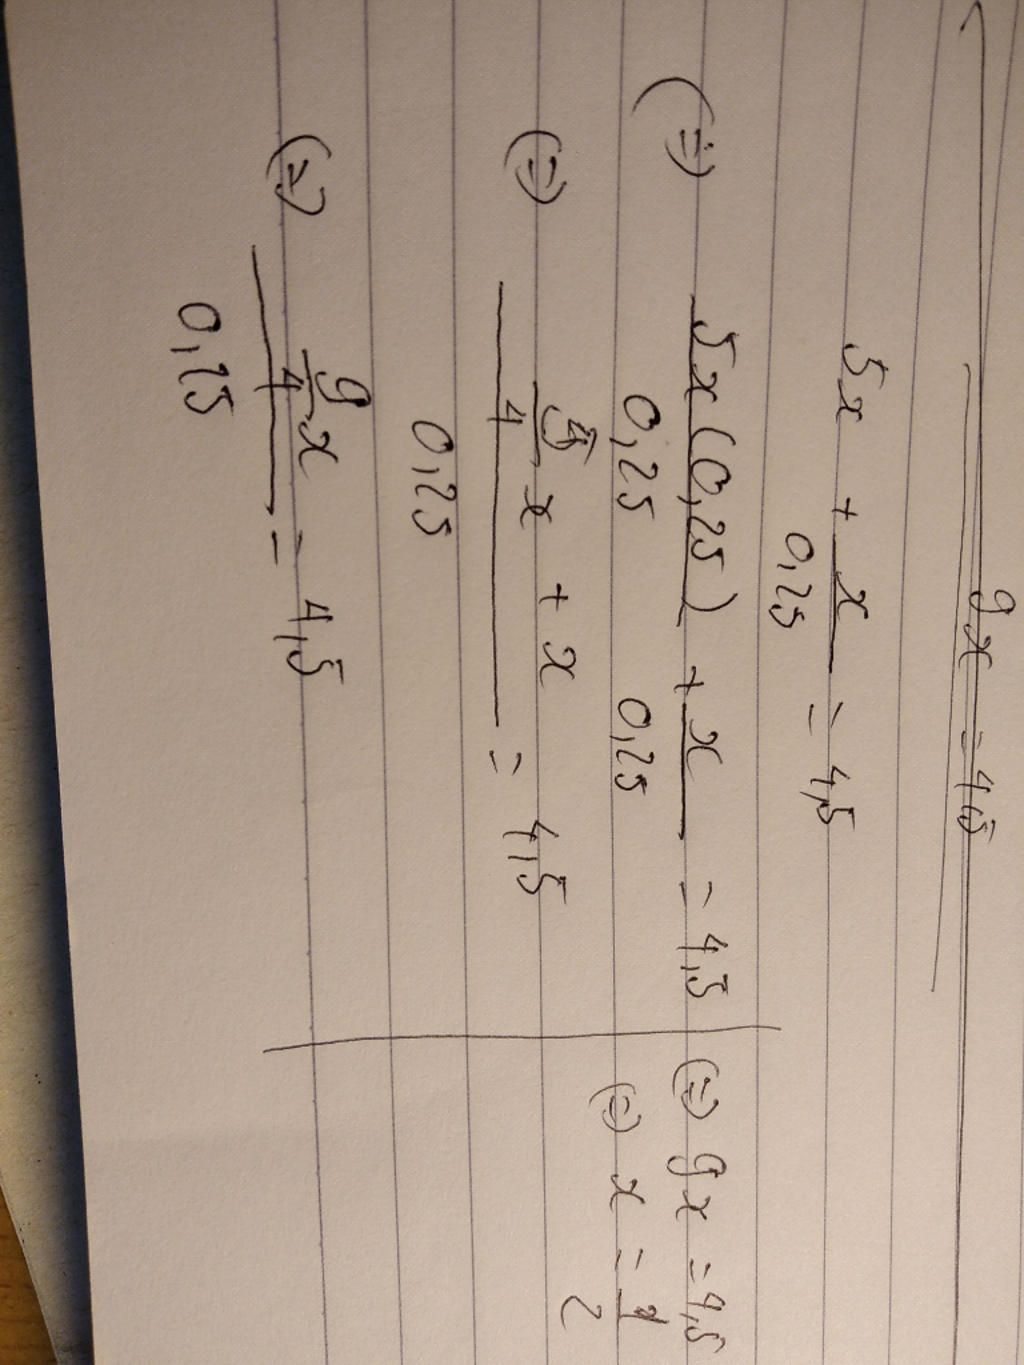 9x = 4,5
5x + x/0,25 = 4,5
(=) 5x(0,25)/0,25 + x/0,25 = 4,5
(=) (5/4 x + x)/0,25 = 4,5
(=) (9/4 x)/0,25 = 4,5
(=) 9x = 4,5
(=) x = 1/2